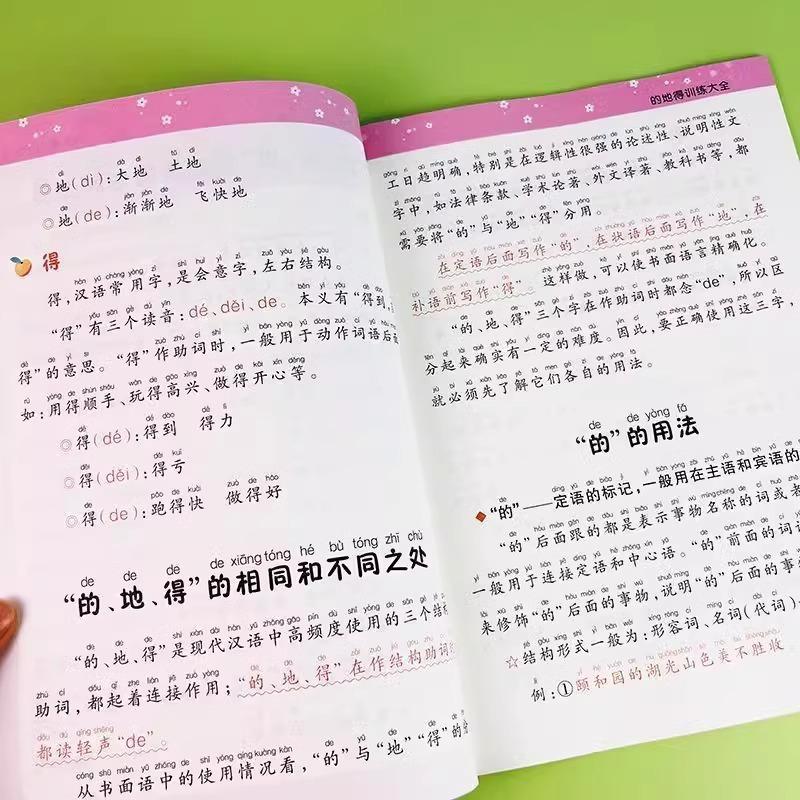 ◎地(dì):大地 土地
◎地(de):渐渐地 飞快地
得
得,汉语常用字,是会意字,左右结构。
“得”有三个读音:dé、děi、de。本义有“得到,
得”的意思。“得”作助词时,一般用于动作词语后面
如:用得顺手、玩得高兴、做得开心等。
◎得(dé):得到 得力
◎得(děi):得亏
◎得(de):跑得快 做得好
“的、地、得”的相同和不同之处
“的、地、得”是现代汉语中高频度使用的三个结
助词,都起着连接作用;“的、地、得”在作结构助词
都读轻声“de”。
从书面语中的使用情况看,“的”与“地”“得”的
的地得训练大全
工日趋明确,特别是在逻辑性很强的论述性、说明性文
字中,如法律条款、学术论著、外文译著、教科书等,都
需要将“的”与“地”“得”分用。
在定语后面写作“的”,在状语后面写作“地”,在
补语前写作“得”。这样做,可以使书面语言精确化。
“的、地、得”三个字在作助词时都念“de”,所以区
分起来确实有一定的难度。因此,要正确使用这三字,
就必须先了解它们各自的用法。
“的”的用法
“的”——定语的标记,一般用在主语和宾语的
“的”后面跟的都是表示事物名称的词或者
一般用于连接定语和中心语。“的”前面的词语
来修饰“的”后面的事物,说明“的”后面的事物
☆结构形式一般为:形容词、名词(代词)
例:①颐和园的湖光山色美不胜收